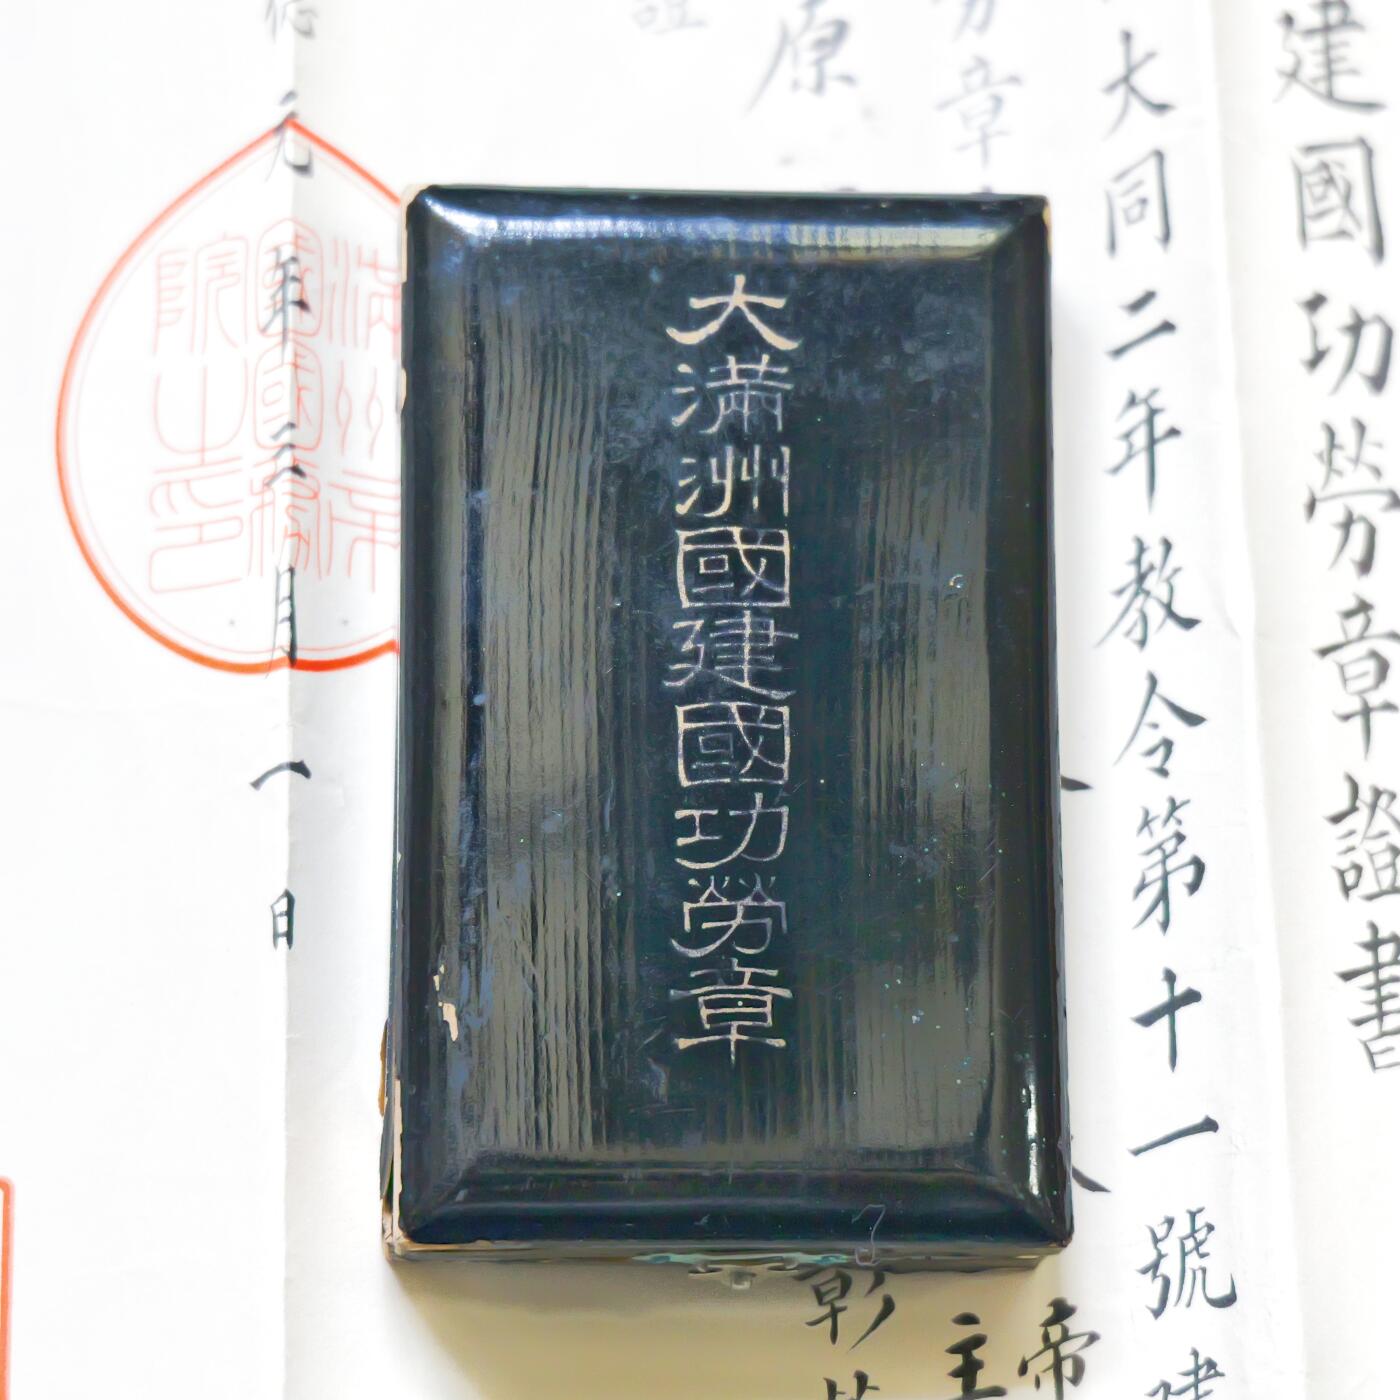 大滿洲國建國功勞章
建國功勞章證書
大同二年教令第十一號建
勞章
原
證
彰
帝
主
元年三月一日
滿洲帝
國國務
院之印